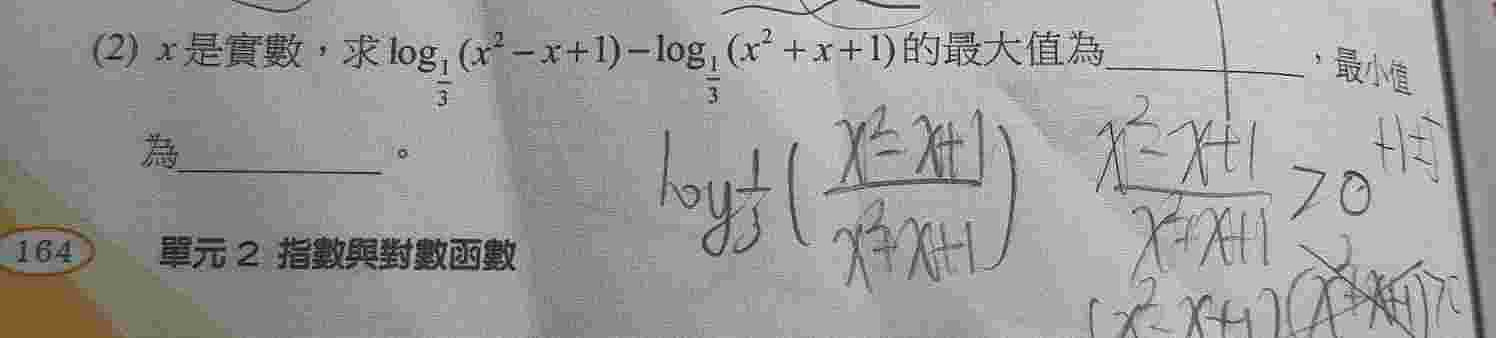 (2) x是實數，求log_{1/3}(x²−x+1)−log_{1/3}(x²+x+1)的最大值為________，最小值
為________。
log 1/3 ( (x²-x+1)/(x²+x+1) )
(x²-x+1)/(x²+x+1) >0
(x²-x+1)(x²+x+1)>
164 單元 2 指數與對數函數